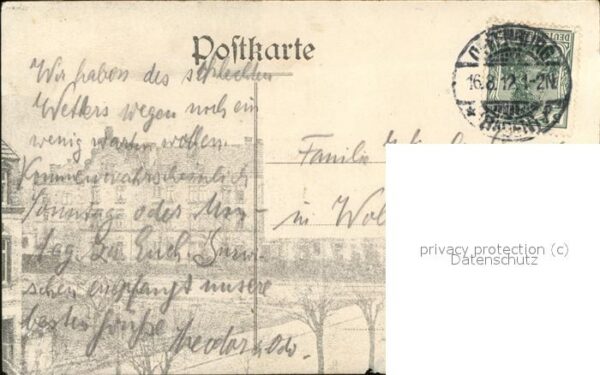 Postkarte
Wir haben des schlechten
Wetters wegen noch ein
wenig warten wollen.
Kommen wahrscheinlich
Sonntag oder Mon-
tag zu Euch. Inzwi-
schen empfangt unsere
besten Grüße
Theodor
Familie
in Wol
OFFENBURG
16.8.12.1-2N
(BADEN)
privacy protection (c)
Datenschutz